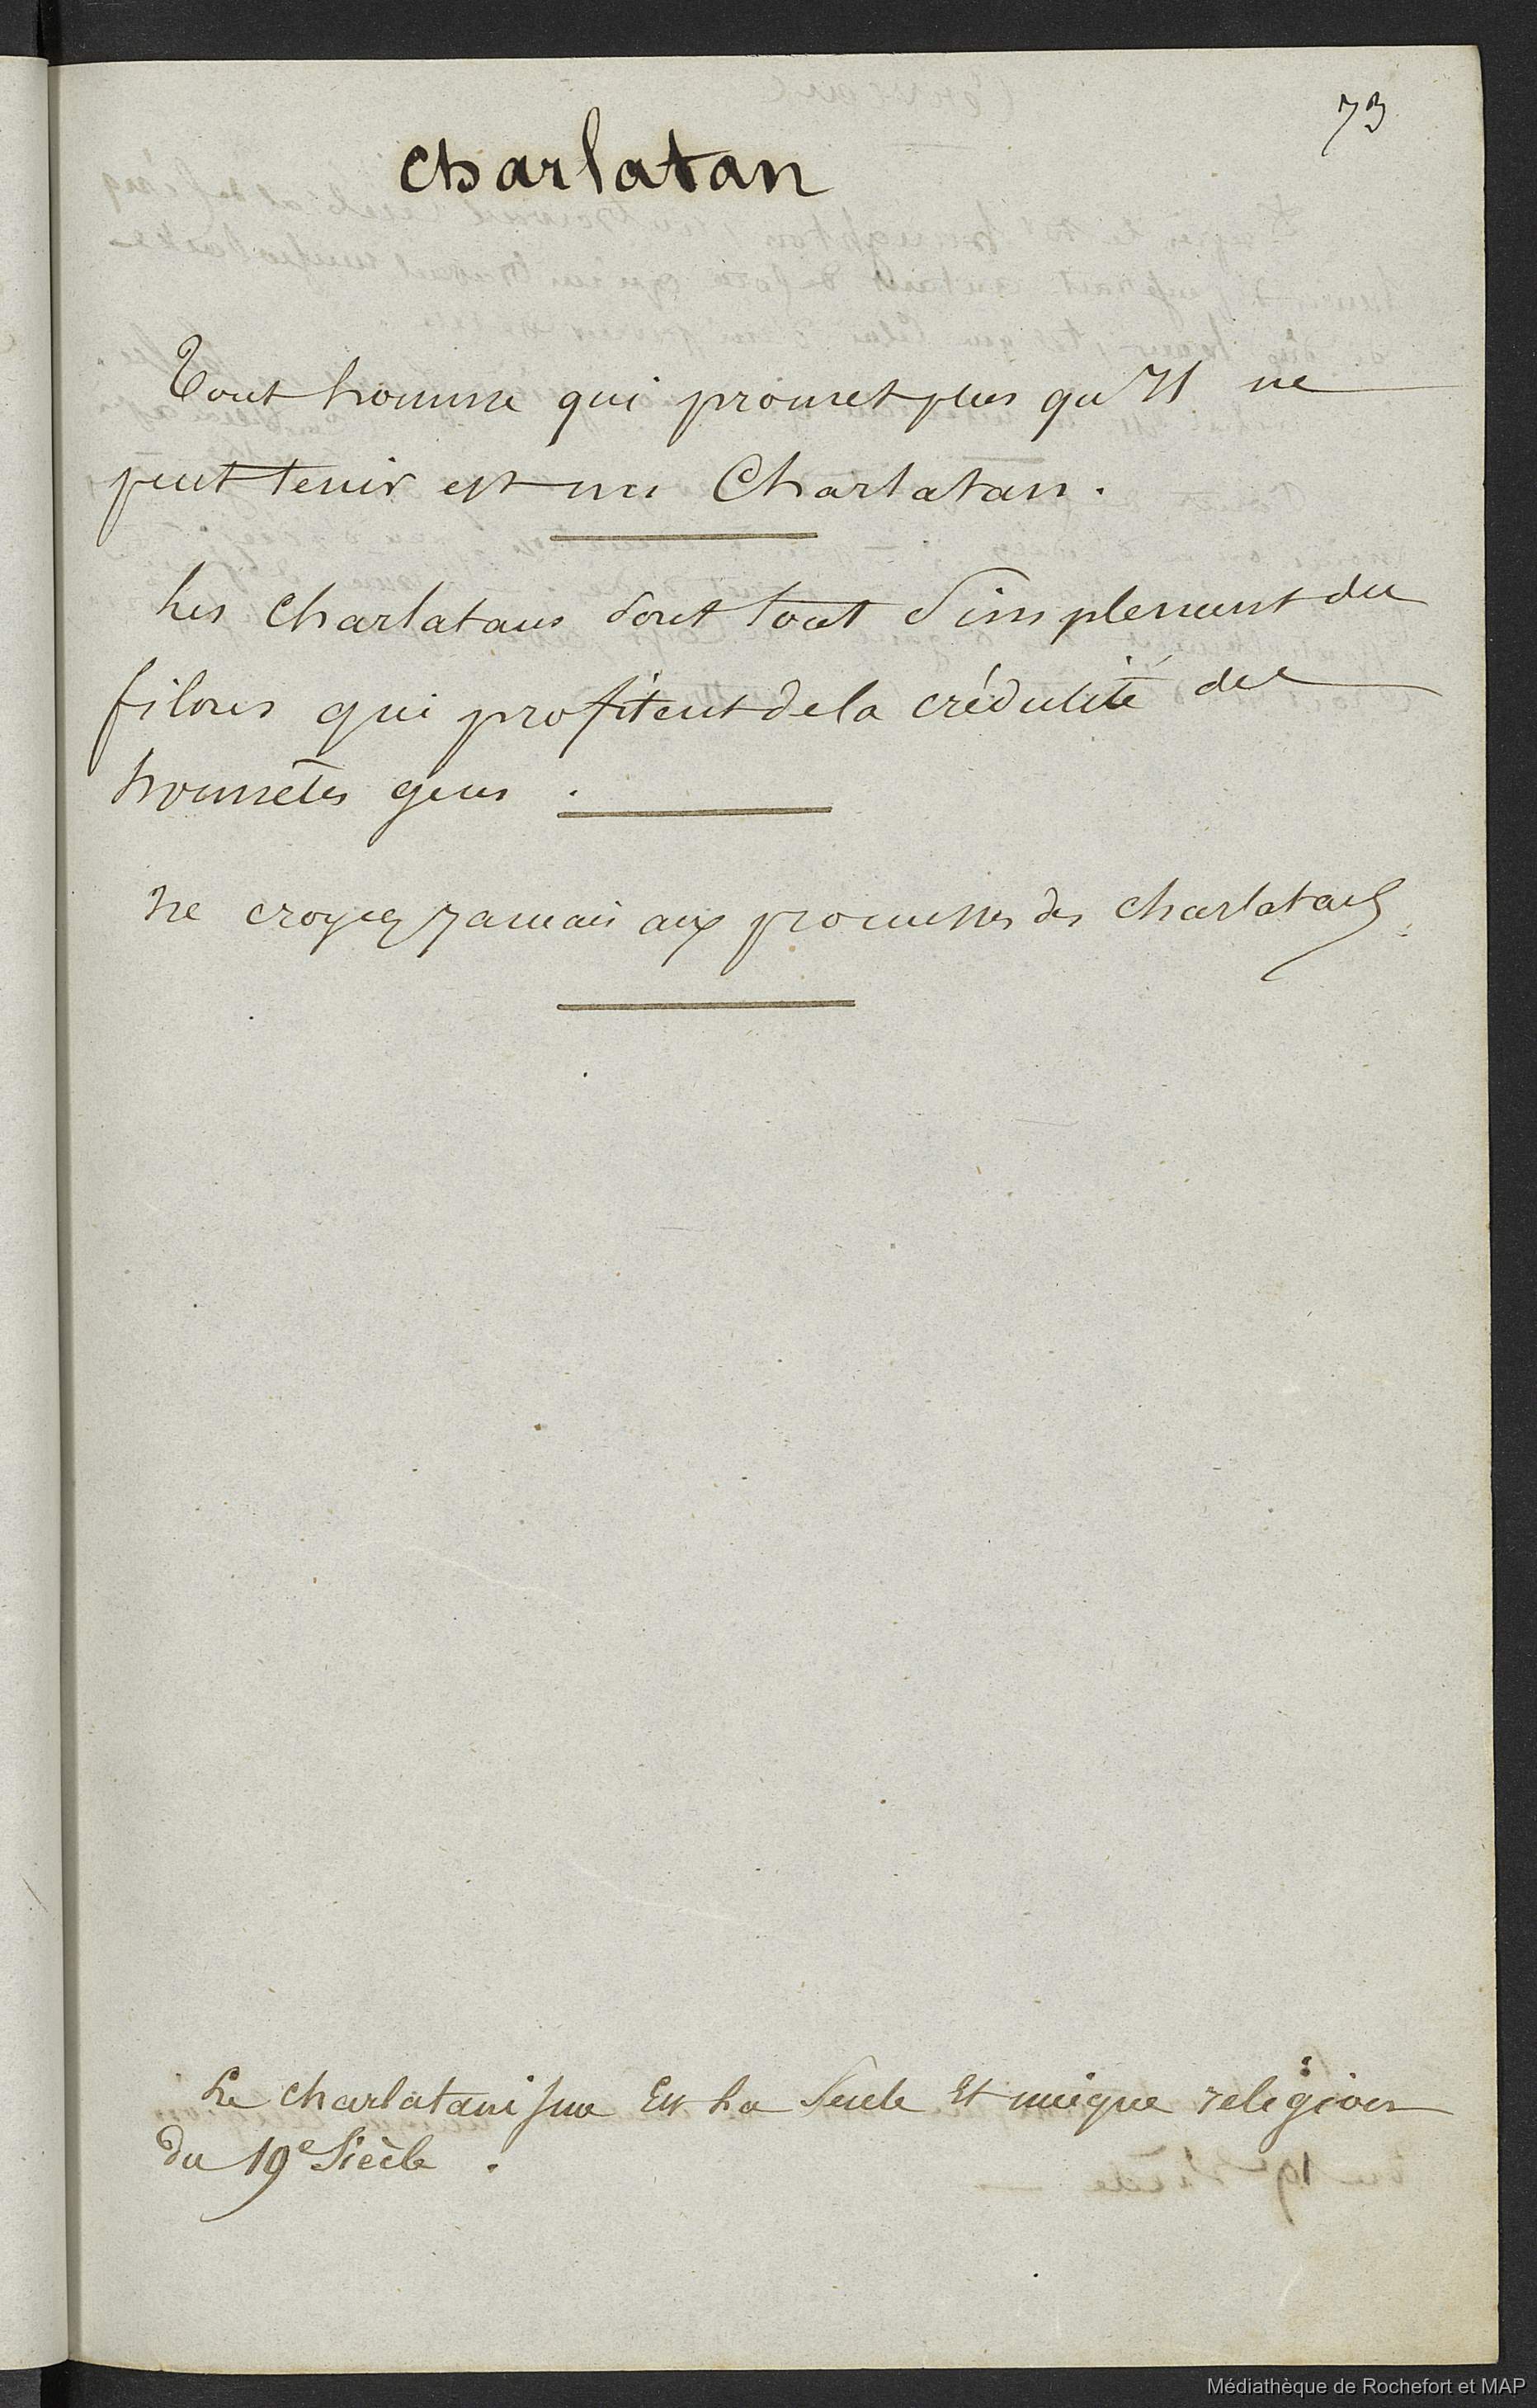 73
Charlatan
Tout homme qui promet plus qu'Il ne
peut tenir est un Charlatan.
Les Charlatans sont tout Simplement des
filous qui profitent de la crédulité des
honnêtes gens.
Ne croyez jamais aux promesses des charlatans.
Le charlatanisme Est La Seule Et unique religion
du 19e Siècle.
Médiathèque de Rochefort et MAP